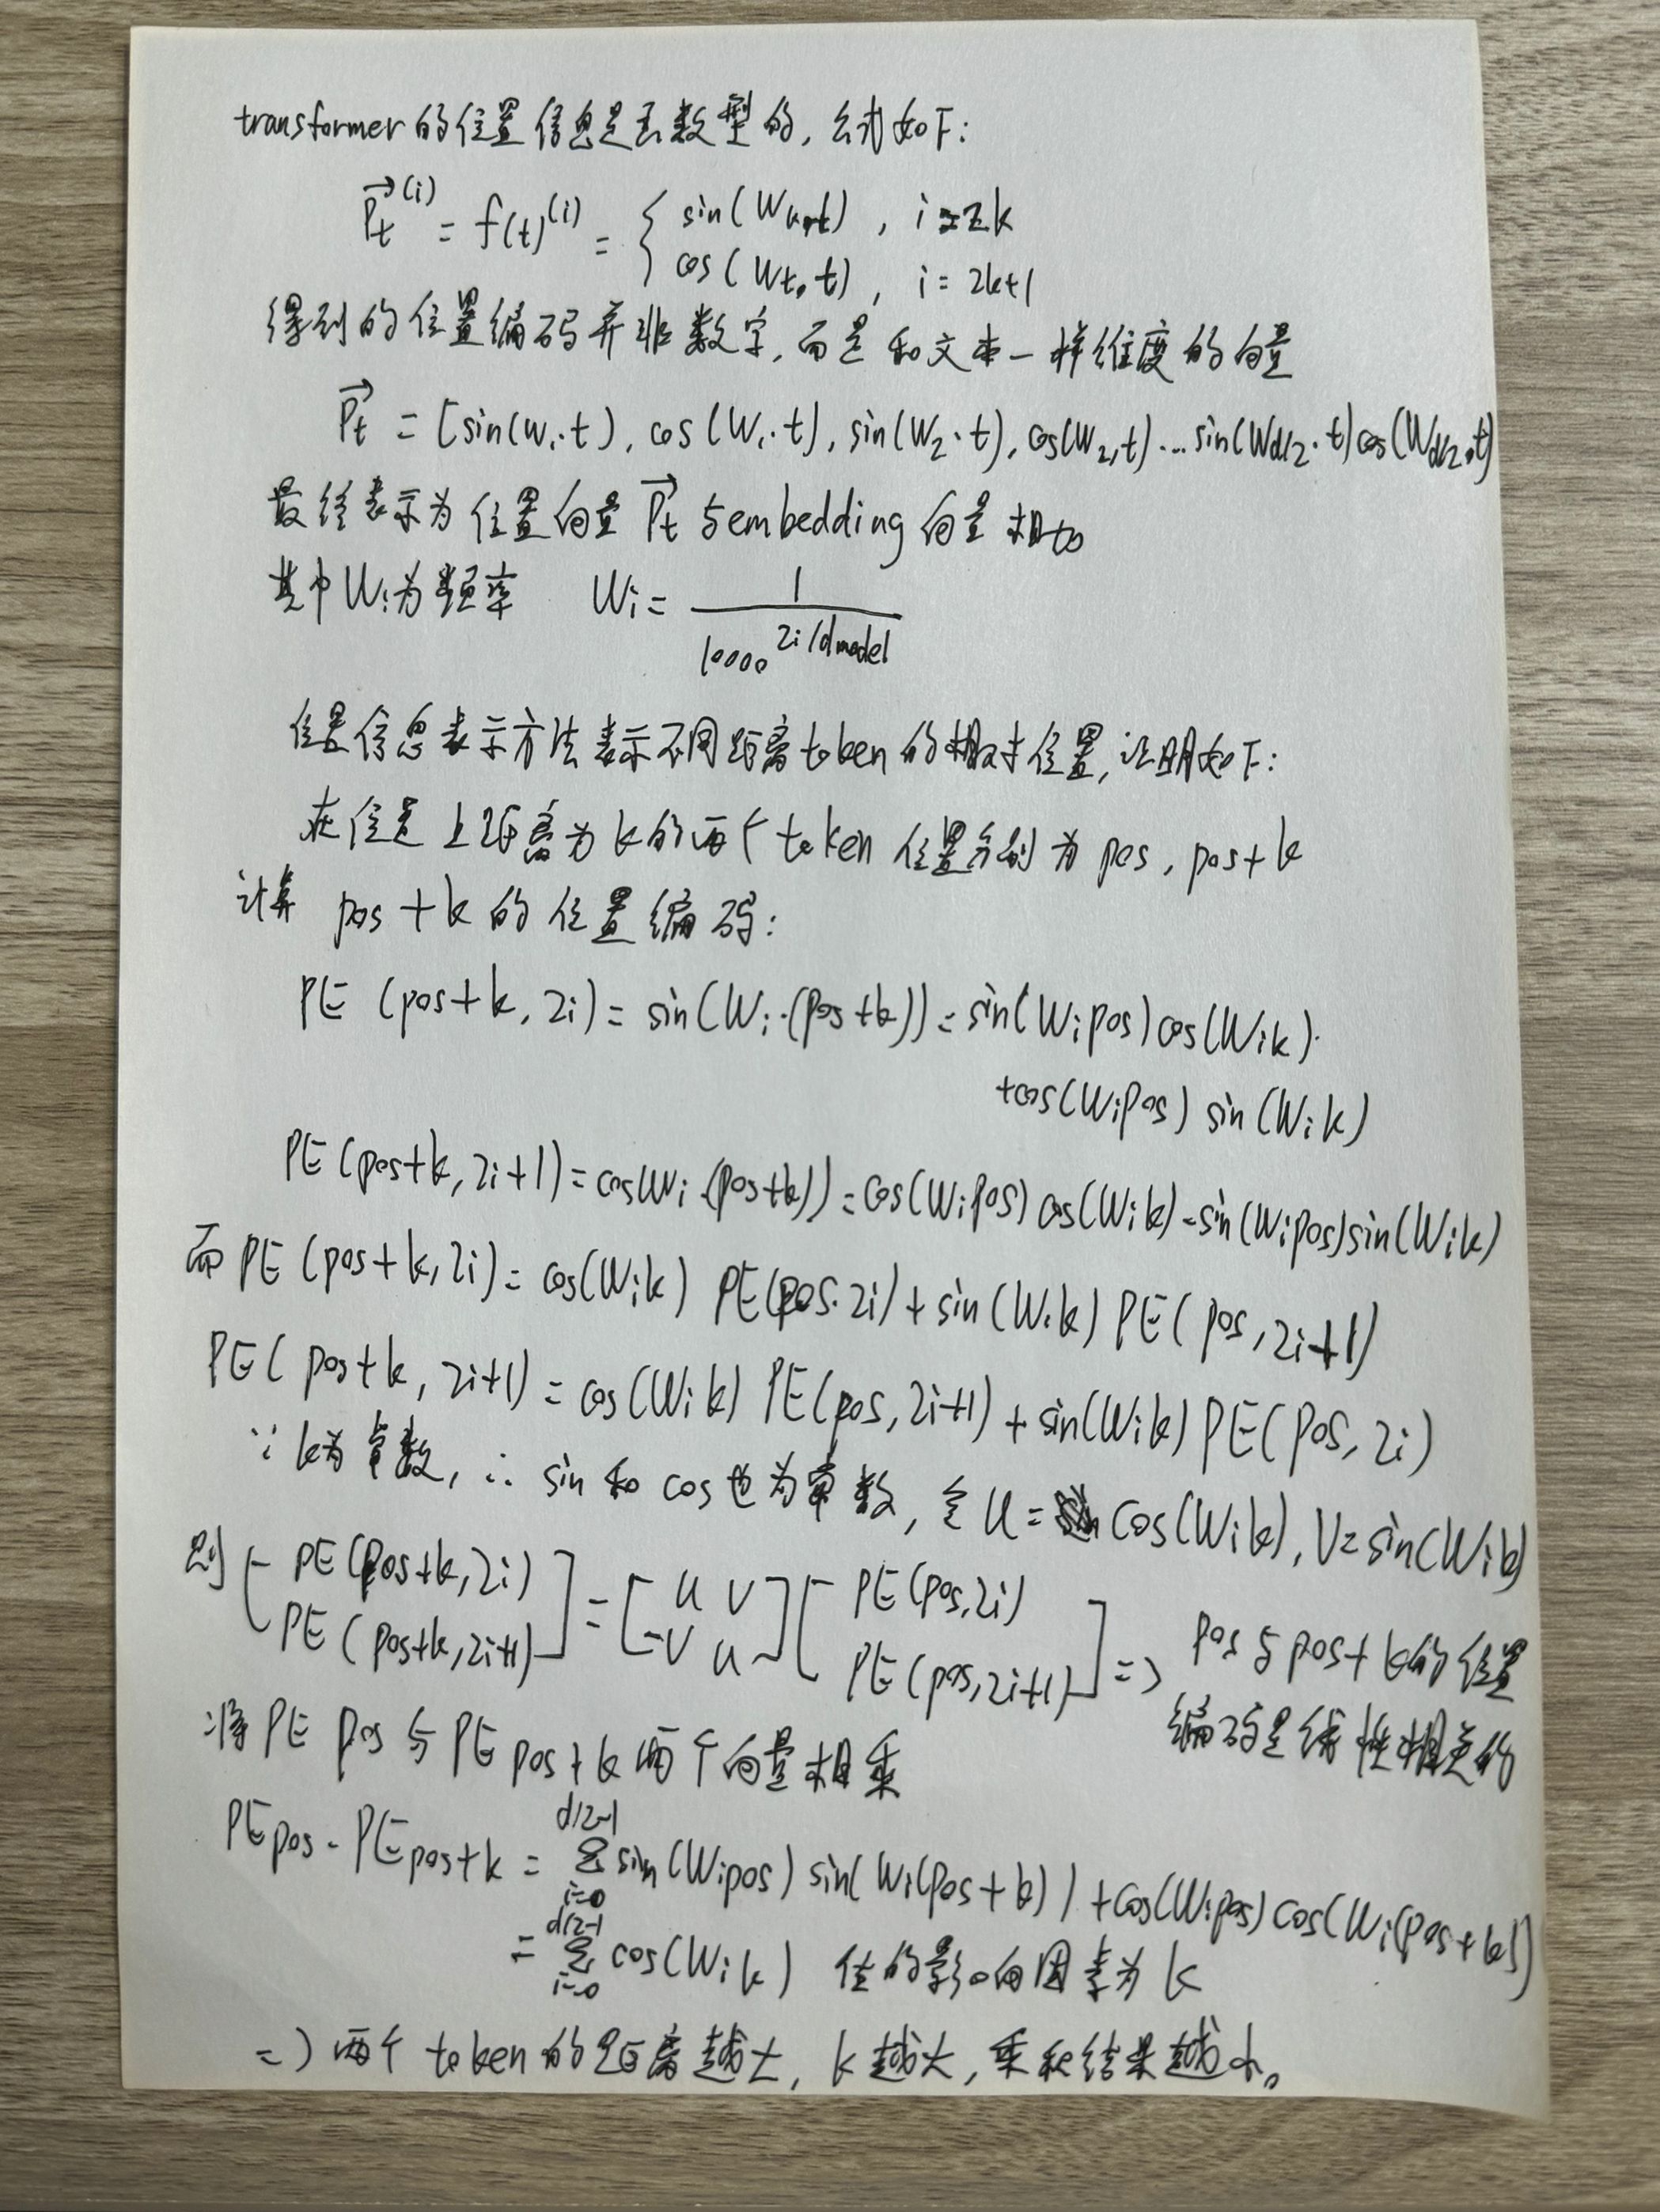 transformer的位置信息是函数型的,公式如下:
\vec{P_t}^{(i)} = f(t)^{(i)} = { sin(W_k·t), i=2k
cos(W_t·t), i=2k+1
得到的位置编码并非数字,而是和文本一样维度的向量
\vec{P_t} = [sin(w_1·t), cos(W_1·t), sin(W_2·t), cos(W_2,t)...sin(W_{d/2}·t)cos(W_{d/2}·t)
最终表示为位置向量 \vec{P_t} 与embedding向量相加
其中W_i为频率 W_i = \frac{1}{10000^{2i/dmodel}}
位置信息表示方法表示不同距离token的相对位置,证明如下:
在位置上距离为k的两个token位置分别为pos, pos+k
计算 pos+k的位置编码:
PE (pos+k, 2i) = sin(W_i·(pos+k)) = sin(W_i pos)cos(W_i k)
+cos(W_i pos) sin(W_i k)
PE(pos+k, 2i+1) = cos(W_i·(pos+k)) = cos(W_i pos) cos(W_i k) - sin(W_i pos)sin(W_i k)
而PE (pos+k, 2i) = cos(W_i k) PE(pos, 2i) + sin(W_i k) PE(pos, 2i+1)
PE(pos+k, 2i+1) = cos(W_i k) PE(pos, 2i+1) + sin(W_i k) PE(pos, 2i)
∵k为常数, ∴ sin和cos也为常数, 令U = cos(W_i k), V = sin(W_i k)
则 [PE(pos+k, 2i) ; PE(pos+k, 2i+1)] = [u v ; -v u] [PE(pos, 2i) ; PE(pos, 2i+1)] => pos与pos+k的位置
编码是线性相关的
将PE pos与PE pos+k两个向量相乘
PE_{pos} · PE_{pos+k} = \sum_{i=0}^{d/2-1} sin(W_i pos) sin(W_i(pos+k)) + cos(W_i pos) cos(W_i(pos+k))
= \sum_{i=0}^{d/2-1} cos(W_i k) 值的影响因素为k
=> 两个token的距离越大, k越大, 乘积结果越小。